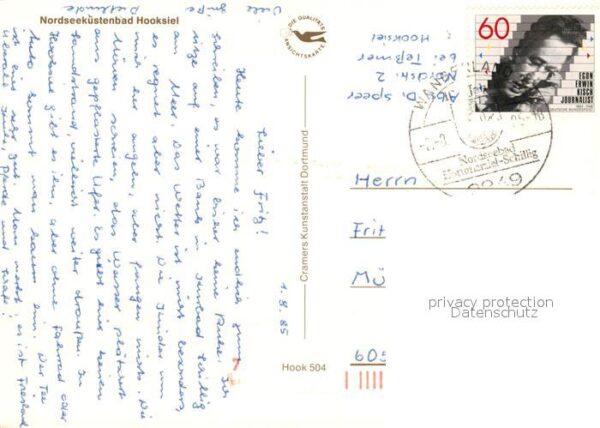 Nordseeküstenbad Hooksiel
DIE QUALITÄTS
ANSICHTSKARTE
Viele
Grüße
1.8.85
Lieber Fritz!
Heute komme ich endlich zum
schreiben, es war bisher keine Ruhe. Ich
sitze auf einer Bank in Horumersiel-Schillig
am Meer. Das Wetter ist nicht besonders,
es regnet aber nicht. Die Kinder um
mich her angeln, aber fangen nichts. Die
Möwen schreien, das Wasser plätschert
ans gepflasterte Ufer. Es gibt hier keinen
Sandstrand, vielleicht weiter draußen. In
Hooksiel gibt es ihn, aber ohne Fahrrad oder
Auto kommt man kaum hin. Der Tee
ist hier sehr gut. Man merkt: es ist Friesland
überall Kühe, Pferde und Schafe!
Cramers Kunstanstalt Dortmund
Hook 504
Abs. D. Speer
bei Teßmer
Hooksiel
60
EGON
ERWIN
KISCH
JOURNALIST
DEUTSCHE BUNDESPOST
WANGERLAND
Nordseebad
Horumersiel-Schillig
2949
Herrn
Frit
Mü
605
privacy protection
Datenschutz